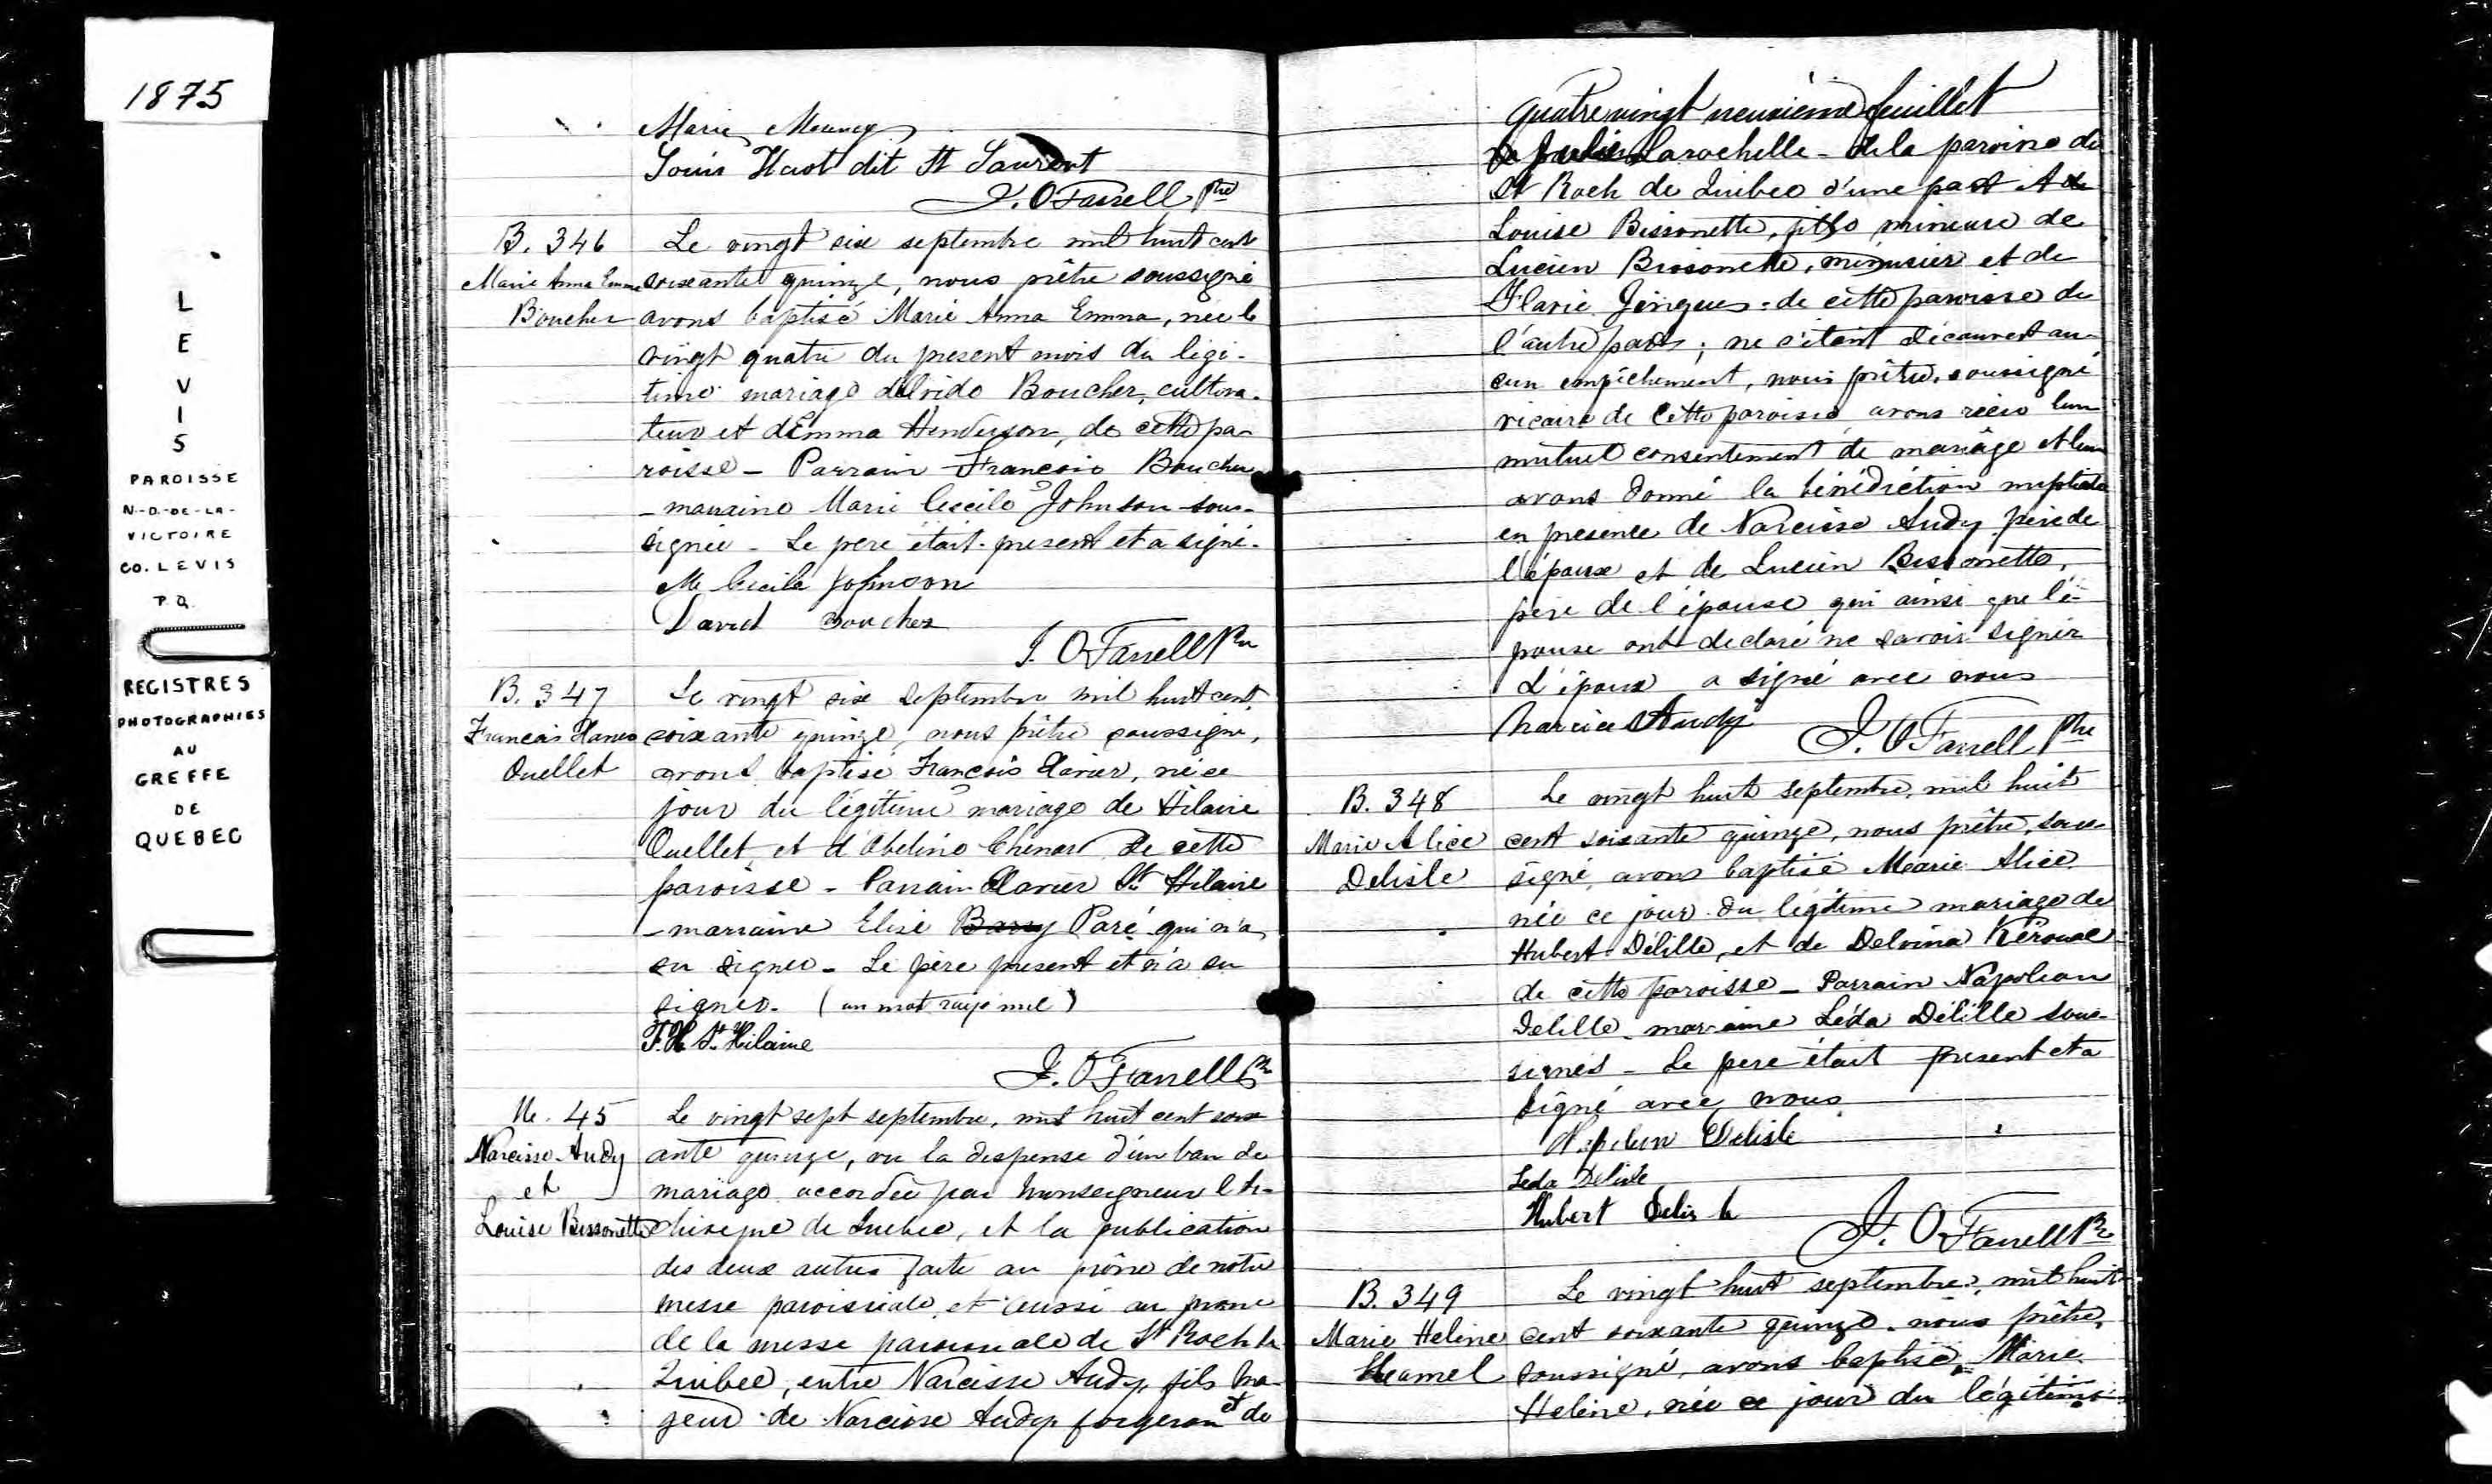 1875
L
E
V
I
S
PAROISSE
N.-D.-DE-LA-
VICTOIRE
CO. LEVIS
P.Q.
REGISTRES
PHOTOGRAPHIES
AU
GREFFE
DE
QUEBEC
Marie
Louis Huot dit St Laurent
J. O'Farrell Ptre
B. 346
Marie Anna Emma
Boucher
Le vingt six septembre mil huit cent
soixante quinze, nous prêtre soussigné
avons baptisé Marie Anna Emma, née le
vingt quatre du present mois du légi-
time mariage de David Boucher, cultiva-
teur et d'Emma Henderson, de cette pa-
roisse - Parrain François Boucher
- marraine Marie Cecile Johnson sous-
signée - Le pere était present et a signé.
M Cecile Johnson
David Boucher
J. O'Farrell Ptre
B. 347
Francois Xavier
Ouellet
Le vingt six septembre mil huit cent
soixante quinze, nous prêtre soussigné,
avons baptisé François Xavier, né ce
jour du légitime mariage de Hilaire
Ouellet et d'Obeline Chénard de cette
paroisse - Parrain Xavier St Hilaire
- marraine Elise Barry Paré qui n'a
su signer - Le père present et n'a su
signer. (un mot rayé nul)
F. X St. Hilaire
J. O'Farrell Ptre
M. 45
Narcisse Audy
et
Louise Bissonette
Le vingt sept septembre, mil huit cent soix
ante quinze, vu la dispense d'un ban de
mariage accordée par Monseigneur l'Ar-
chevêque de Quebec, et la publication
des deux autres faite au prône de notre
messe paroissiale et aussi au prone
de la messe paroissiale de St Roch de
Quibec, entre Narcisse Audy, fils ma-
jeur de Narcisse Audy forgeron et de
quatre vingt neuvième feuillet
Larochelle - de la paroisse de
St Roch de Quibec d'une part et de
Louise Bissonette, fille mineure de
Lucien Bissonette, menuisier et de
Flavie Gingues - de cette paroisse de
l'autre part; ne s'étant découvert au-
cun empêchement, nous prêtre, soussigné
vicaire de cette paroisse avons récu leur
mutuel consentement de mariage et leur
avons donné la bénédiction nuptiale
en presence de Narcisse Audy père de
l'époux et de Lucien Bissonette,
père de l'épouse qui ainsi que l'é-
pouse ont declaré ne savoir signer
L'époux a signé avec nous
Narcisse Audy
J. O'Farrell Ptre
B. 348
Marie Alice
Delisle
Le vingt huit septembre, mil huit
cent soixante quinze, nous prêtre, sous-
signé, avons baptisé Marie Alice
née ce jour du légitime mariage de
Hubert Délille, et de Delvina Kérouac
de cette paroisse - Parrain Napoléon
Delille - marraine Léda Délille sous-
signés - Le pere était present et a
signé avec nous
Napoleon Delisle
Leda Delisle
Hubert Delisle
J. O'Farrell Ptre
B. 349
Marie Heléne
Hamel
Le vingt huit septembre, mil huit
cent soixante quinze, nous prêtre,
soussigné, avons baptisé Marie
Heléne, née ce jour du légitime